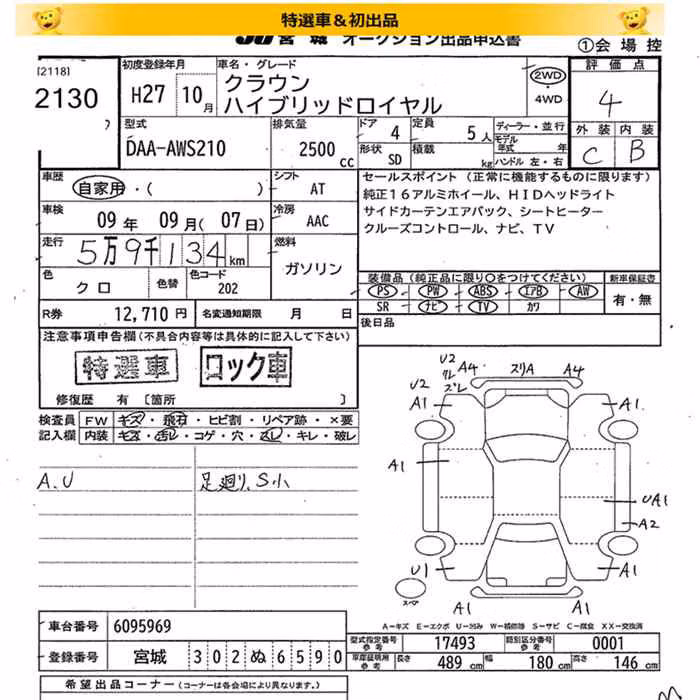 特選車＆初出品
JU 宮城 オークション出品申込書
①会場控
[2118]
2130
初度登録年月
H27 10月
車名・グレード
クラウン
ハイブリッドロイヤル
2WD
・
4WD
評価点
4
外装 内装
C B
型式
DAA-AWS210
排気量
2500 cc
ドア 4
定員 5人
形状 SD
積載 kg
ディーラー・並行
モデル年式 年
ハンドル 左・右
車歴
自家用・( )
シフト AT
車検
09年 09月(07日)
冷房 AAC
走行
5万9千134km
燃料
ガソリン
色 クロ
色替
色コード 202
R券 12,710円
名変通知期限 月 日
セールスポイント（正常に機能するものに限ります）
純正１６アルミホイール、ＨＩＤヘッドライト
サイドカーテンエアバック、シートヒーター
クルーズコントロール、ナビ、ＴＶ
装備品（純正品に限り○をつけてください）
新車保証書
PS PW ABS エアB AW
SR ナビ TV カワ
有・無
後日品
注意事項申告欄(不具合内容等は具体的に記入して下さい)
特選車 ロック車
修復歴 有 〔箇所 〕
検査員記入欄
FW キズ・飛石・ヒビ割・リペア跡・×要
内装 キズ・汚レ・コゲ・穴・スレ・キレ・破レ
A、U
足廻り、S小
U2
A4 スリA A4
U2
A1
A1
A1
UA1
A2
U1
A1
A1 A1
スペア
A-キズ E-エクボ U-凹み W-補修跡 S-サビ C-腐食 XX-交換済
車台番号 6095969
登録番号 宮城 302ぬ6590
型式指定番号 参考 17493
類別区分番号 参考 0001
車庫証明用 参考 長さ 489cm 幅 180cm 高さ 146cm
希望出品コーナー（各会場により異なります。）